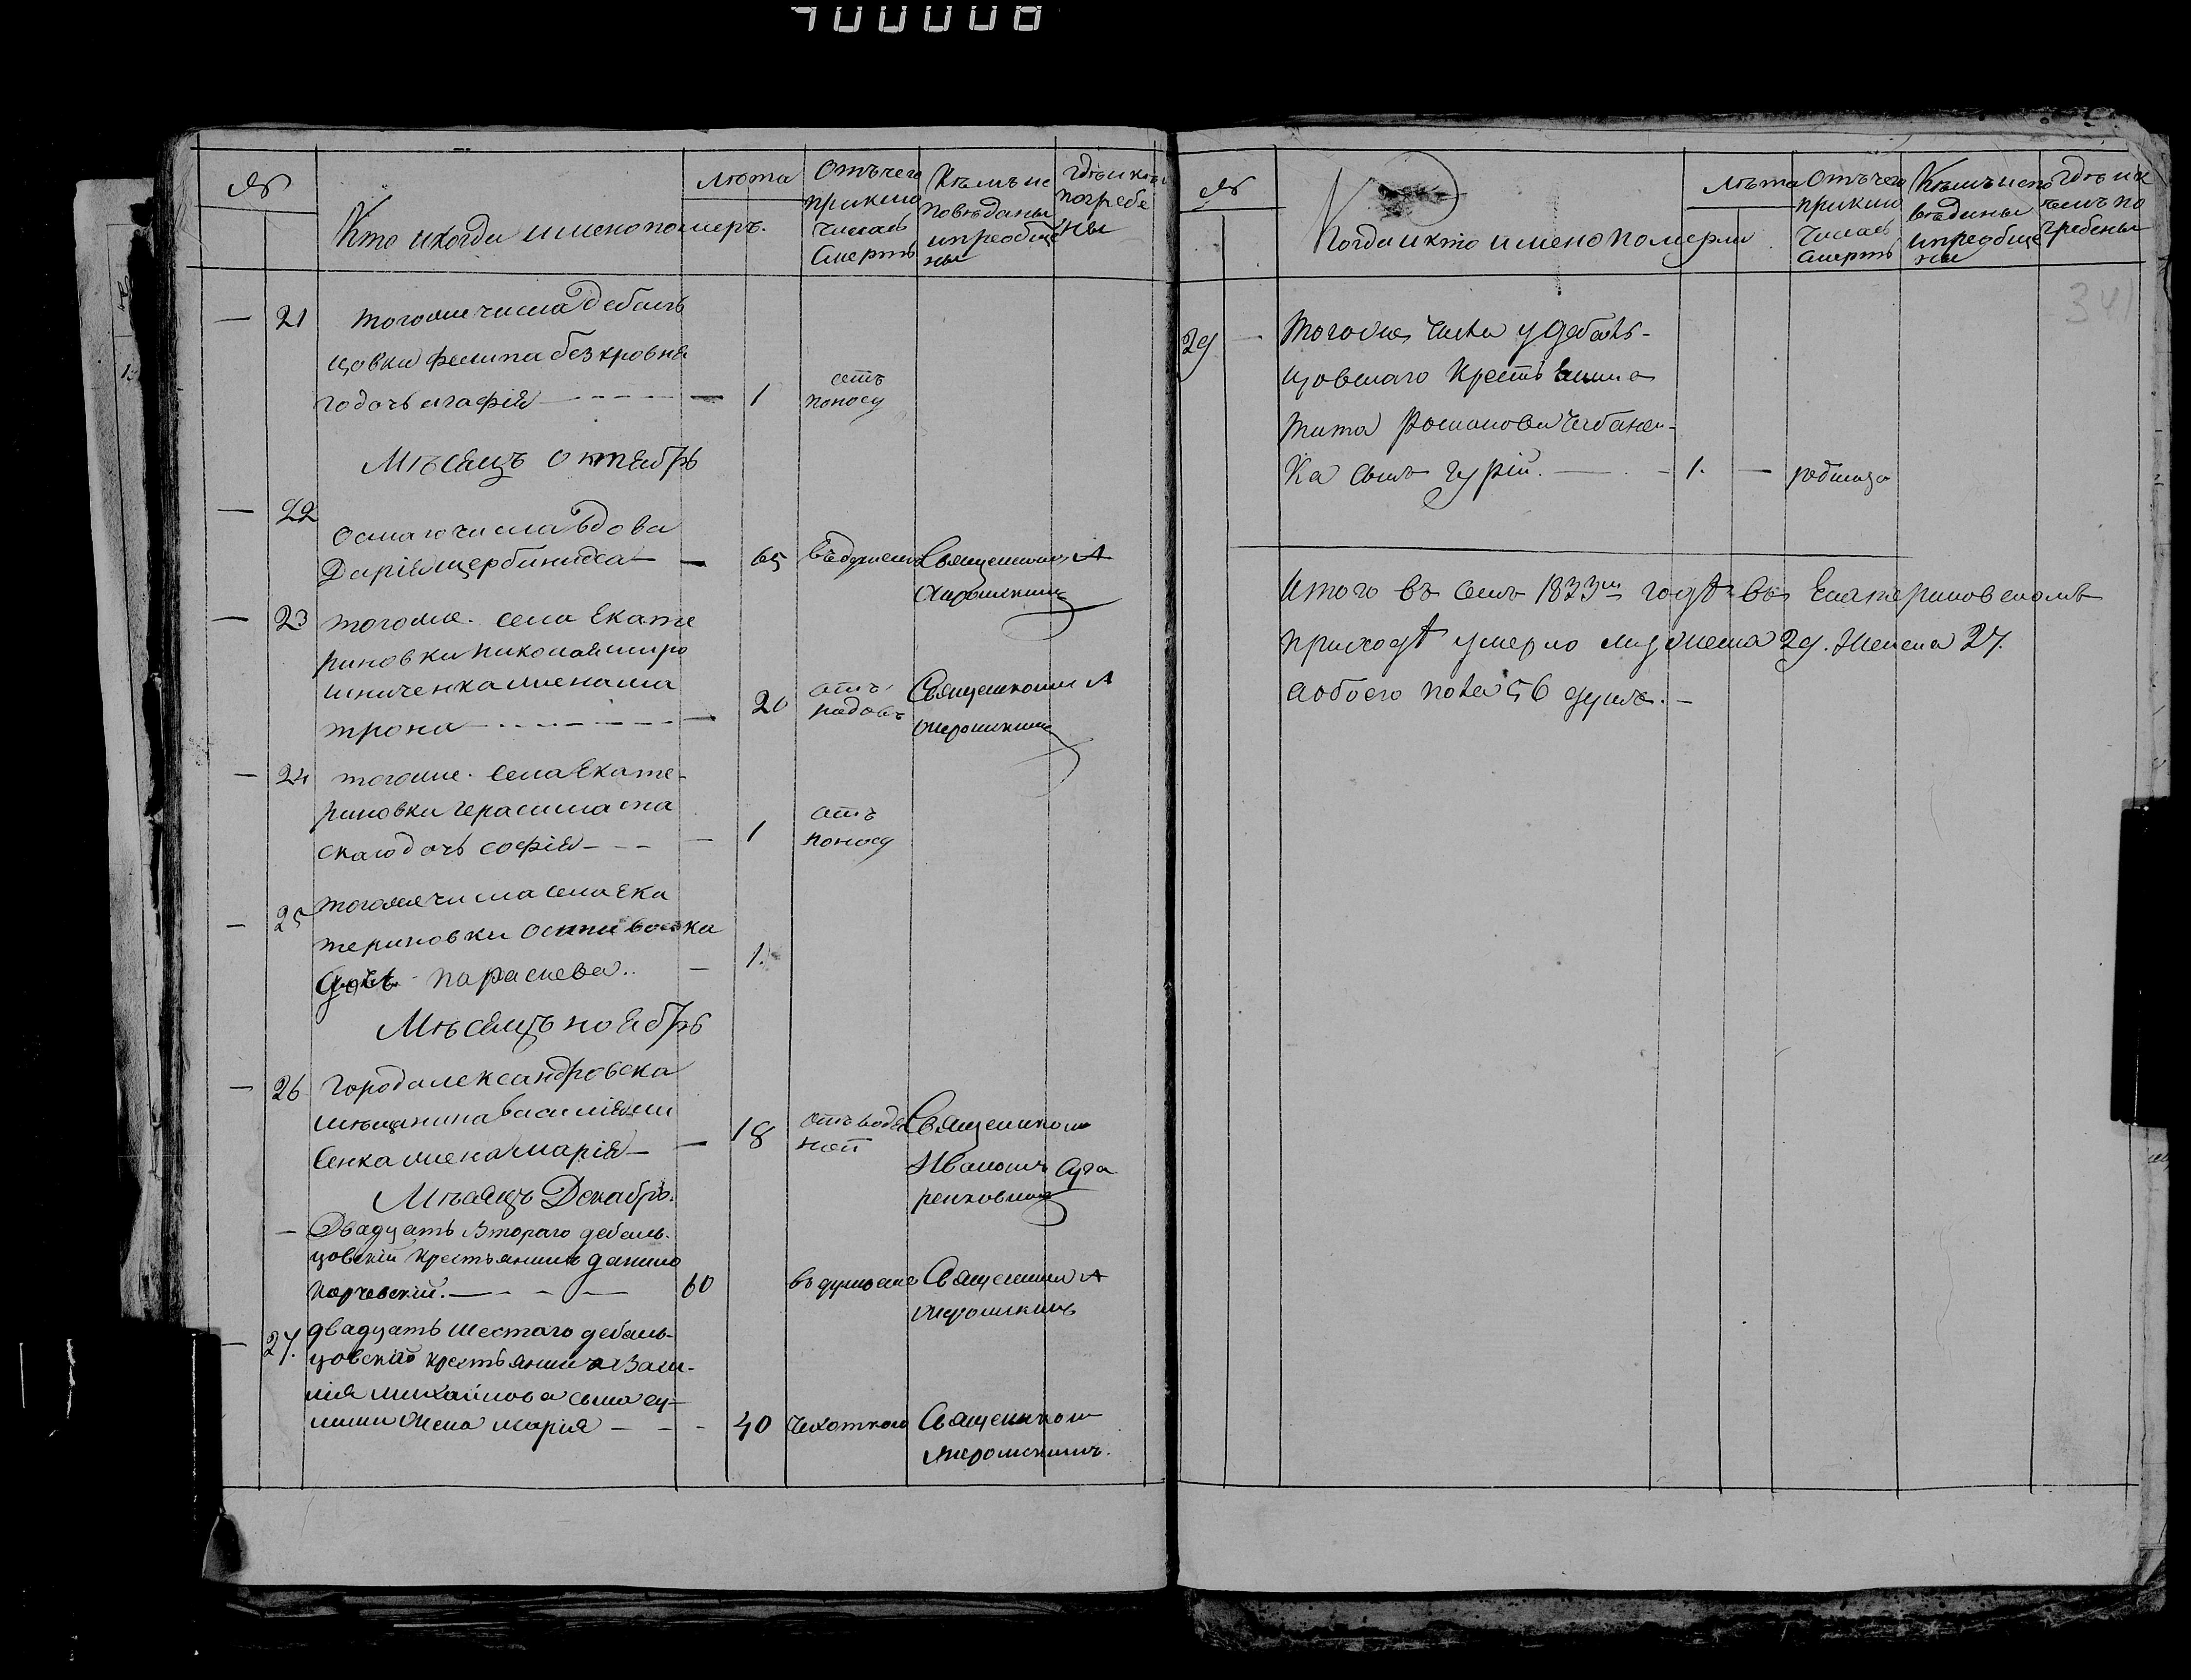 400008
№
Кто и когда имено померъ.
Лѣта
Отъ чего
приклю
чилась
Смерть
Кѣмъ ис
повѣданы
и преобще
ны
гдѣ и кѣм
погребе
ны
— 21 тогоже числа Дебаль
цовки Филипа безкровна
го дочь агафія — — 1 отъ
поносу
Мѣсяцъ октябрь
— 22 осмаго числа вдова
Дарія щербинина — 65 въ
Священникъ А
— 23 тогоже. села Екате
риновки николая миро
шниченка жена ма
трона — — 20 отъ
родовъ
Священником А
— 24 тогоже. села Екате-
риновки герасима
дочь софія — — 1 отъ
поносу
— 25 тогоже числа села Ека
териновки
дочь параскева.. — 1.
Мѣсяцъ ноябрь
— 26 Города александровска
мѣщанина василія
сенка жена марія — — 18 отъ водя
ной
Священиком
Иваномъ
Мѣсяцъ Декабрь.
— Двадцать втораго дебаль-
цовскій крестьянинъ данило
60
Священики А
— 27. двадцать шестаго дебаль-
цовскаго крестьянина Васи-
лія михайлова сына су-
лимы жена марія — — 40 чехоткою Священиком
341
№
Когда и кто имено померли
Лѣта
Отъ чего
приклю
чилась
Смерть
Кѣмъ испо
вѣданы
и преобще
ны
гдѣ и к
ѣмъ по
гребены
29 — тогоже числа у Дебаль-
цовскаго крестьянина
тита романова чабанен-
ка сынъ гурій. — — 1. — родимца
Итого въ семъ 1833м годѣ въ Екатериновскомъ
приходѣ умерло мужеска 29. Женска 27.
а обоего пола 56 душъ. —